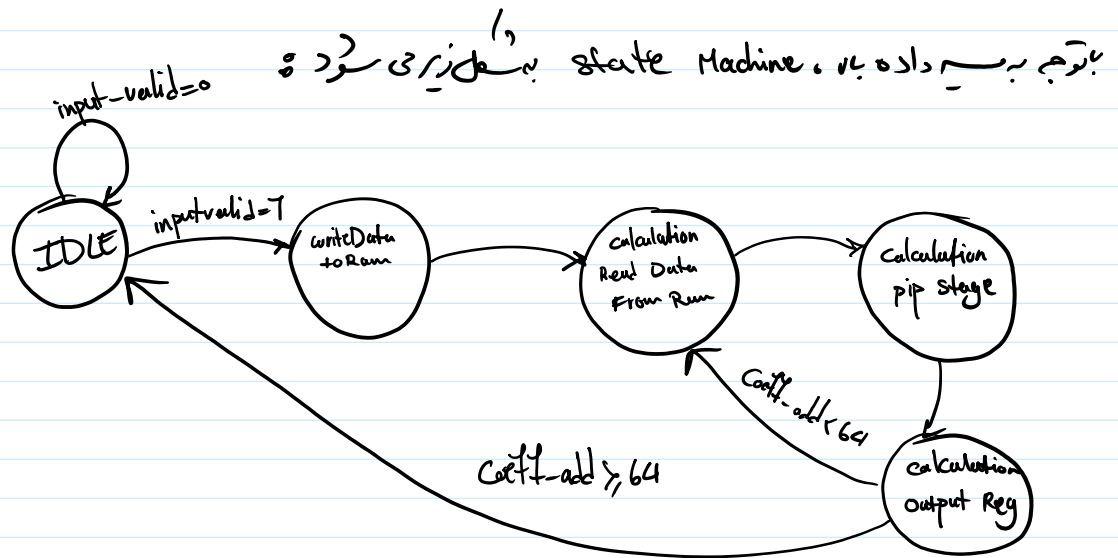 با توجه به مسیر داده بالا، state Machine به شکل زیر می شود :
input-valid=0
IDLE
inputvalid=1
writeData
toRam
calculation
Read Data
From Ram
calculation
pip stage
Coeff-add<64
Coeff-add≥64
calculation
output Reg